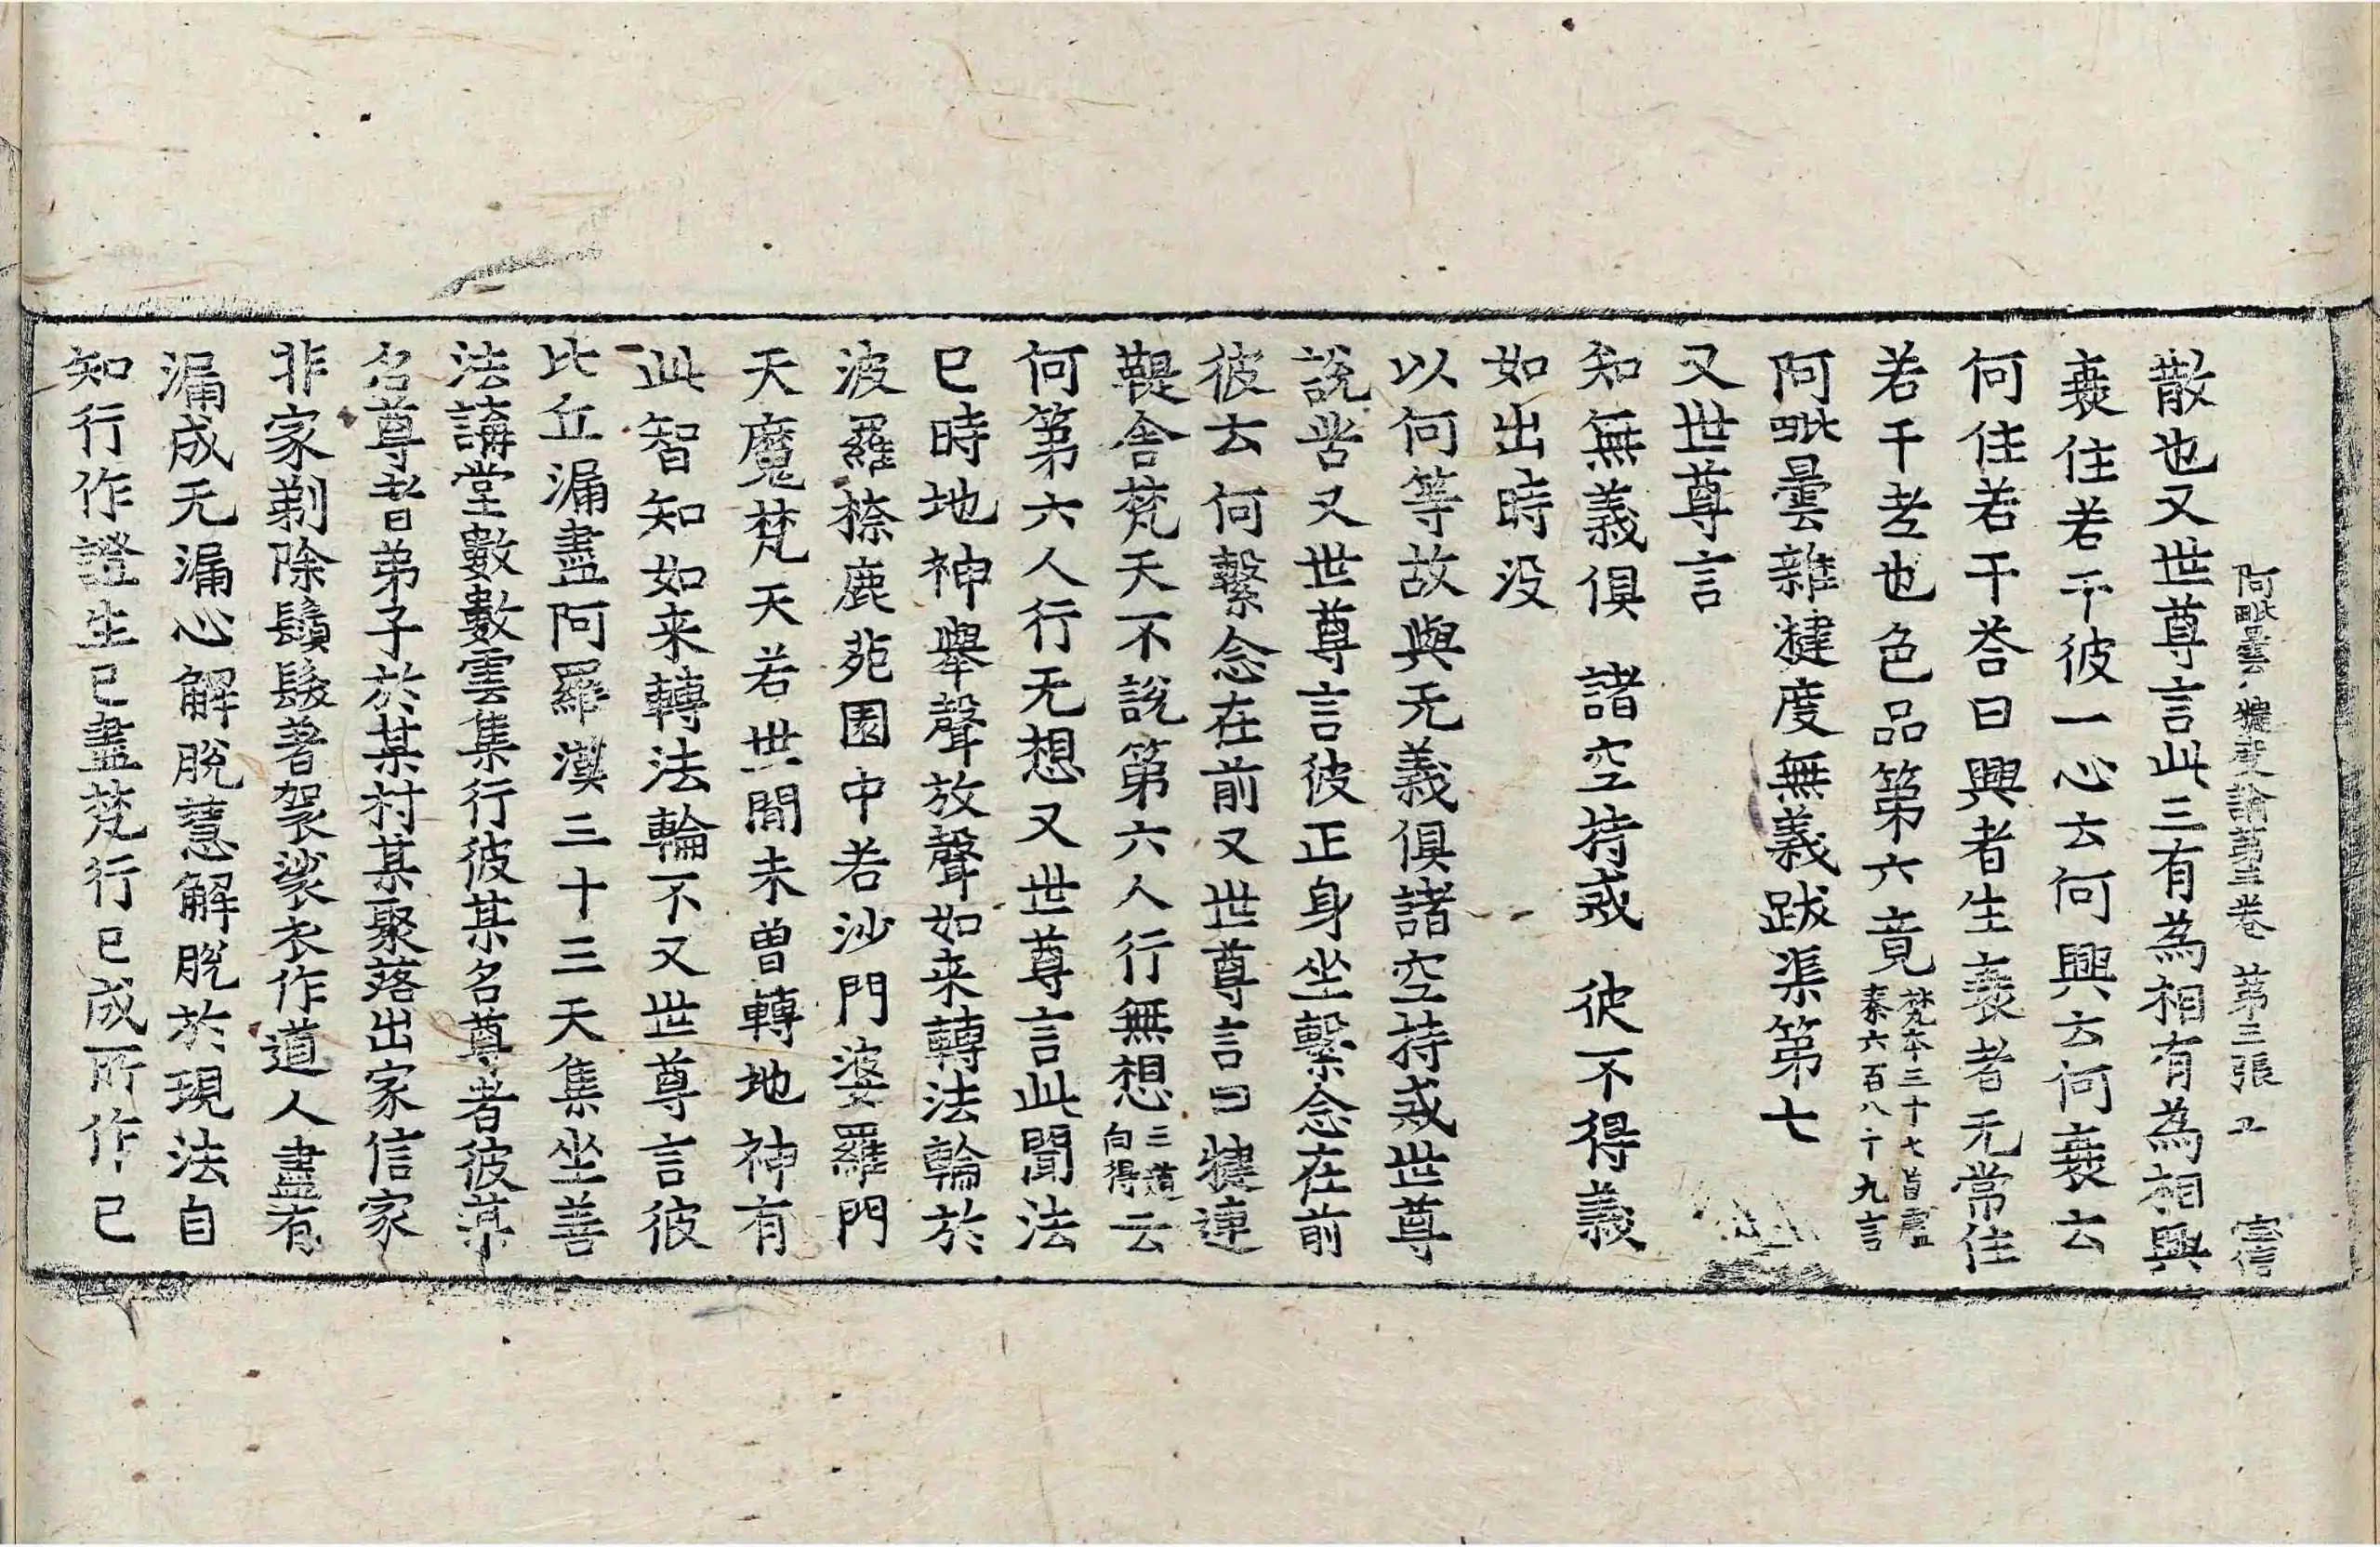 阿毗曇八犍度論第三卷 第三張 卫 宗信
散也又世尊言此三有為相有為相興
衰住若干彼一心云何興云何衰云
何住若干荅曰興者生衰者无常住
若干老也色品第六竟梵本三十七首盧
秦六百八十九言
阿毗曇雜揵度無義跋渠第七
又世尊言
知無義俱 諸空持戒 彼不得義
如出時没
以何等故與无義俱諸空持戒世尊
說苦又世尊言彼正身坐繫念在前
彼云何繫念在前又世尊言曰犍連
鞮舍梵天不說第六人行無想三道
向得云
何第六人行无想又世尊言此聞法
已時地神舉聲放聲如来轉法輪於
波羅㮈鹿苑園中若沙門婆羅門
天魔梵天若世間未曾轉地神有
此智知如来轉法輪不又世尊言彼
比丘漏盡阿羅漢三十三天集坐善
法講堂數數雲集行彼某名尊者彼某
名尊者弟子於某村某聚落出家信家
非家剃除鬚髮著袈裟衣作道人盡有
漏成无漏心解脫慧解脫於現法自
知行作證生已盡梵行已成所作已